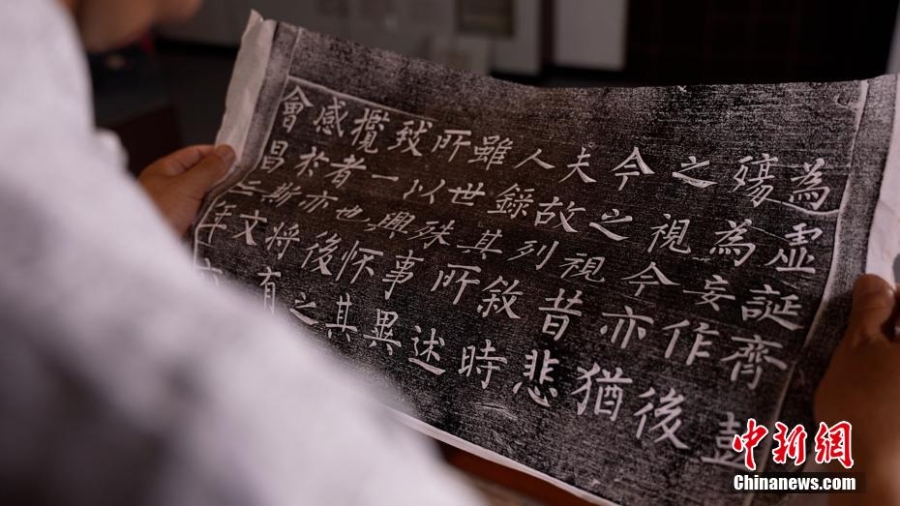 為虛誕齊彭
殤為妄作後
之視今亦猶
今之視昔悲
夫故列敘時
人錄其所述
雖世殊事異
所以興懷其
致一也後之
攬者亦將有
感於斯文
會昌二年
中新网
Chinanews.com